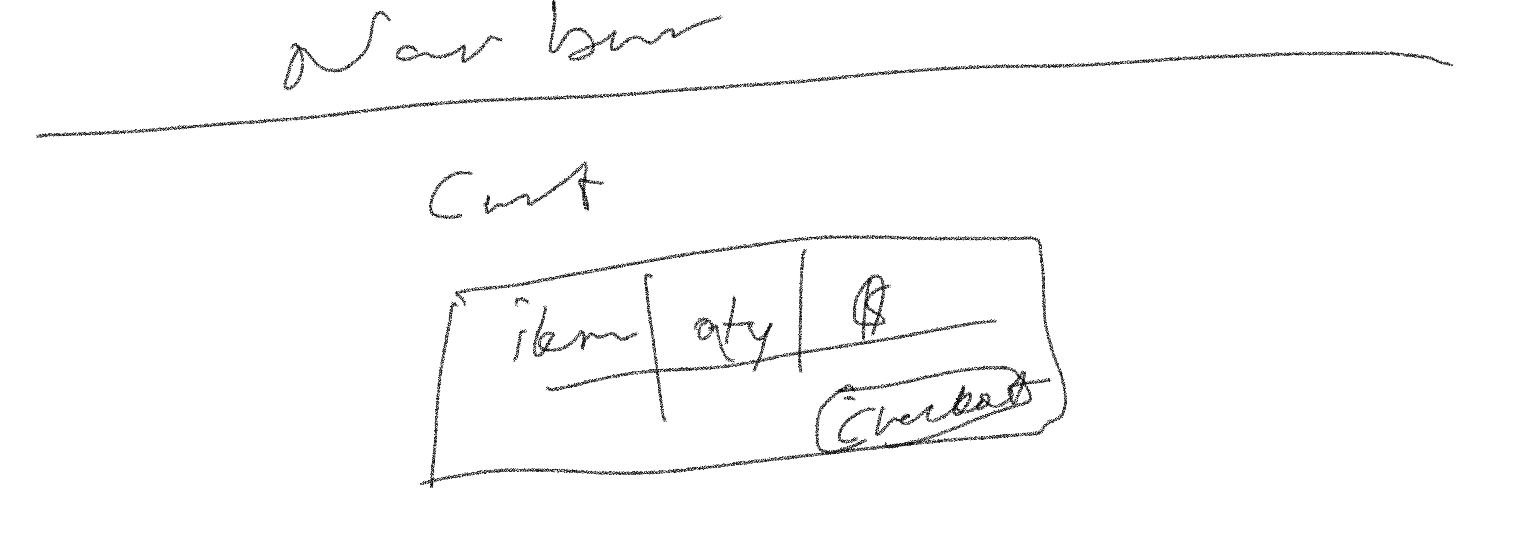 Nav bar
Cart
item qty $
Checkout